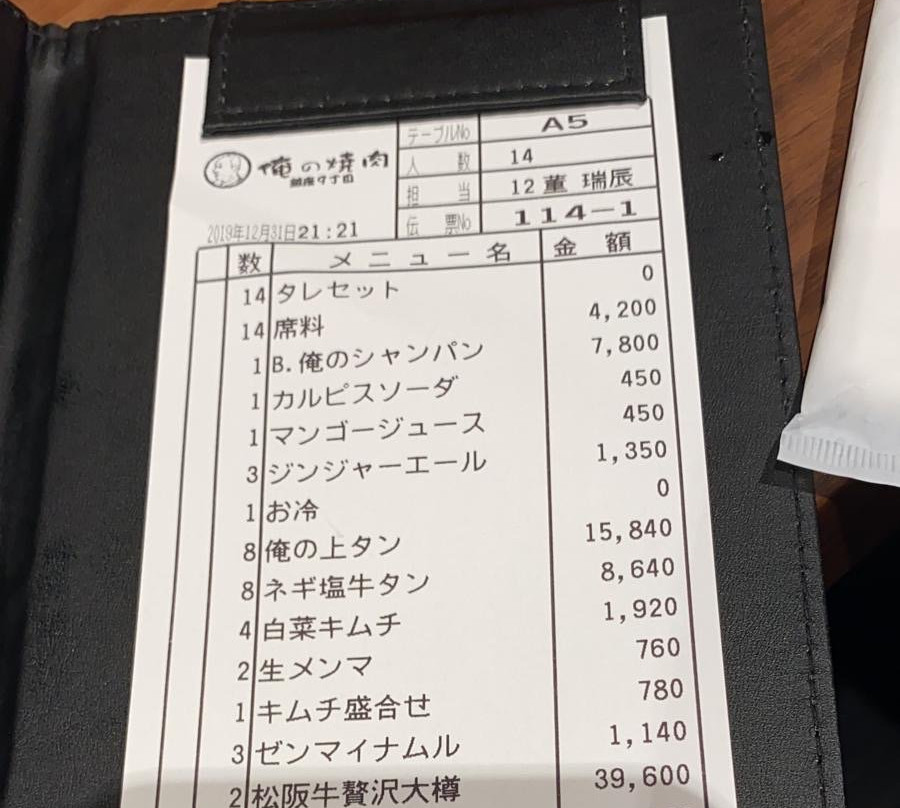 テーブルNo A5
俺の焼肉
銀座9丁目
人 数 14
担 当 12 董 瑞辰
伝 票No 114-1
2019年12月31日21:21
数 メニュー名 金 額
14 タレセット 0
14 席料 4,200
1 B.俺のシャンパン 7,800
1 カルピスソーダ 450
1 マンゴージュース 450
3 ジンジャーエール 1,350
1 お冷 0
8 俺の上タン 15,840
8 ネギ塩牛タン 8,640
4 白菜キムチ 1,920
2 生メンマ 760
1 キムチ盛合せ 780
3 ゼンマイナムル 1,140
2 松阪牛贅沢大樽 39,600